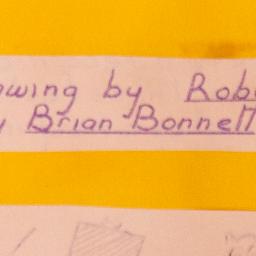 wing by Rob
Brian Bonnell